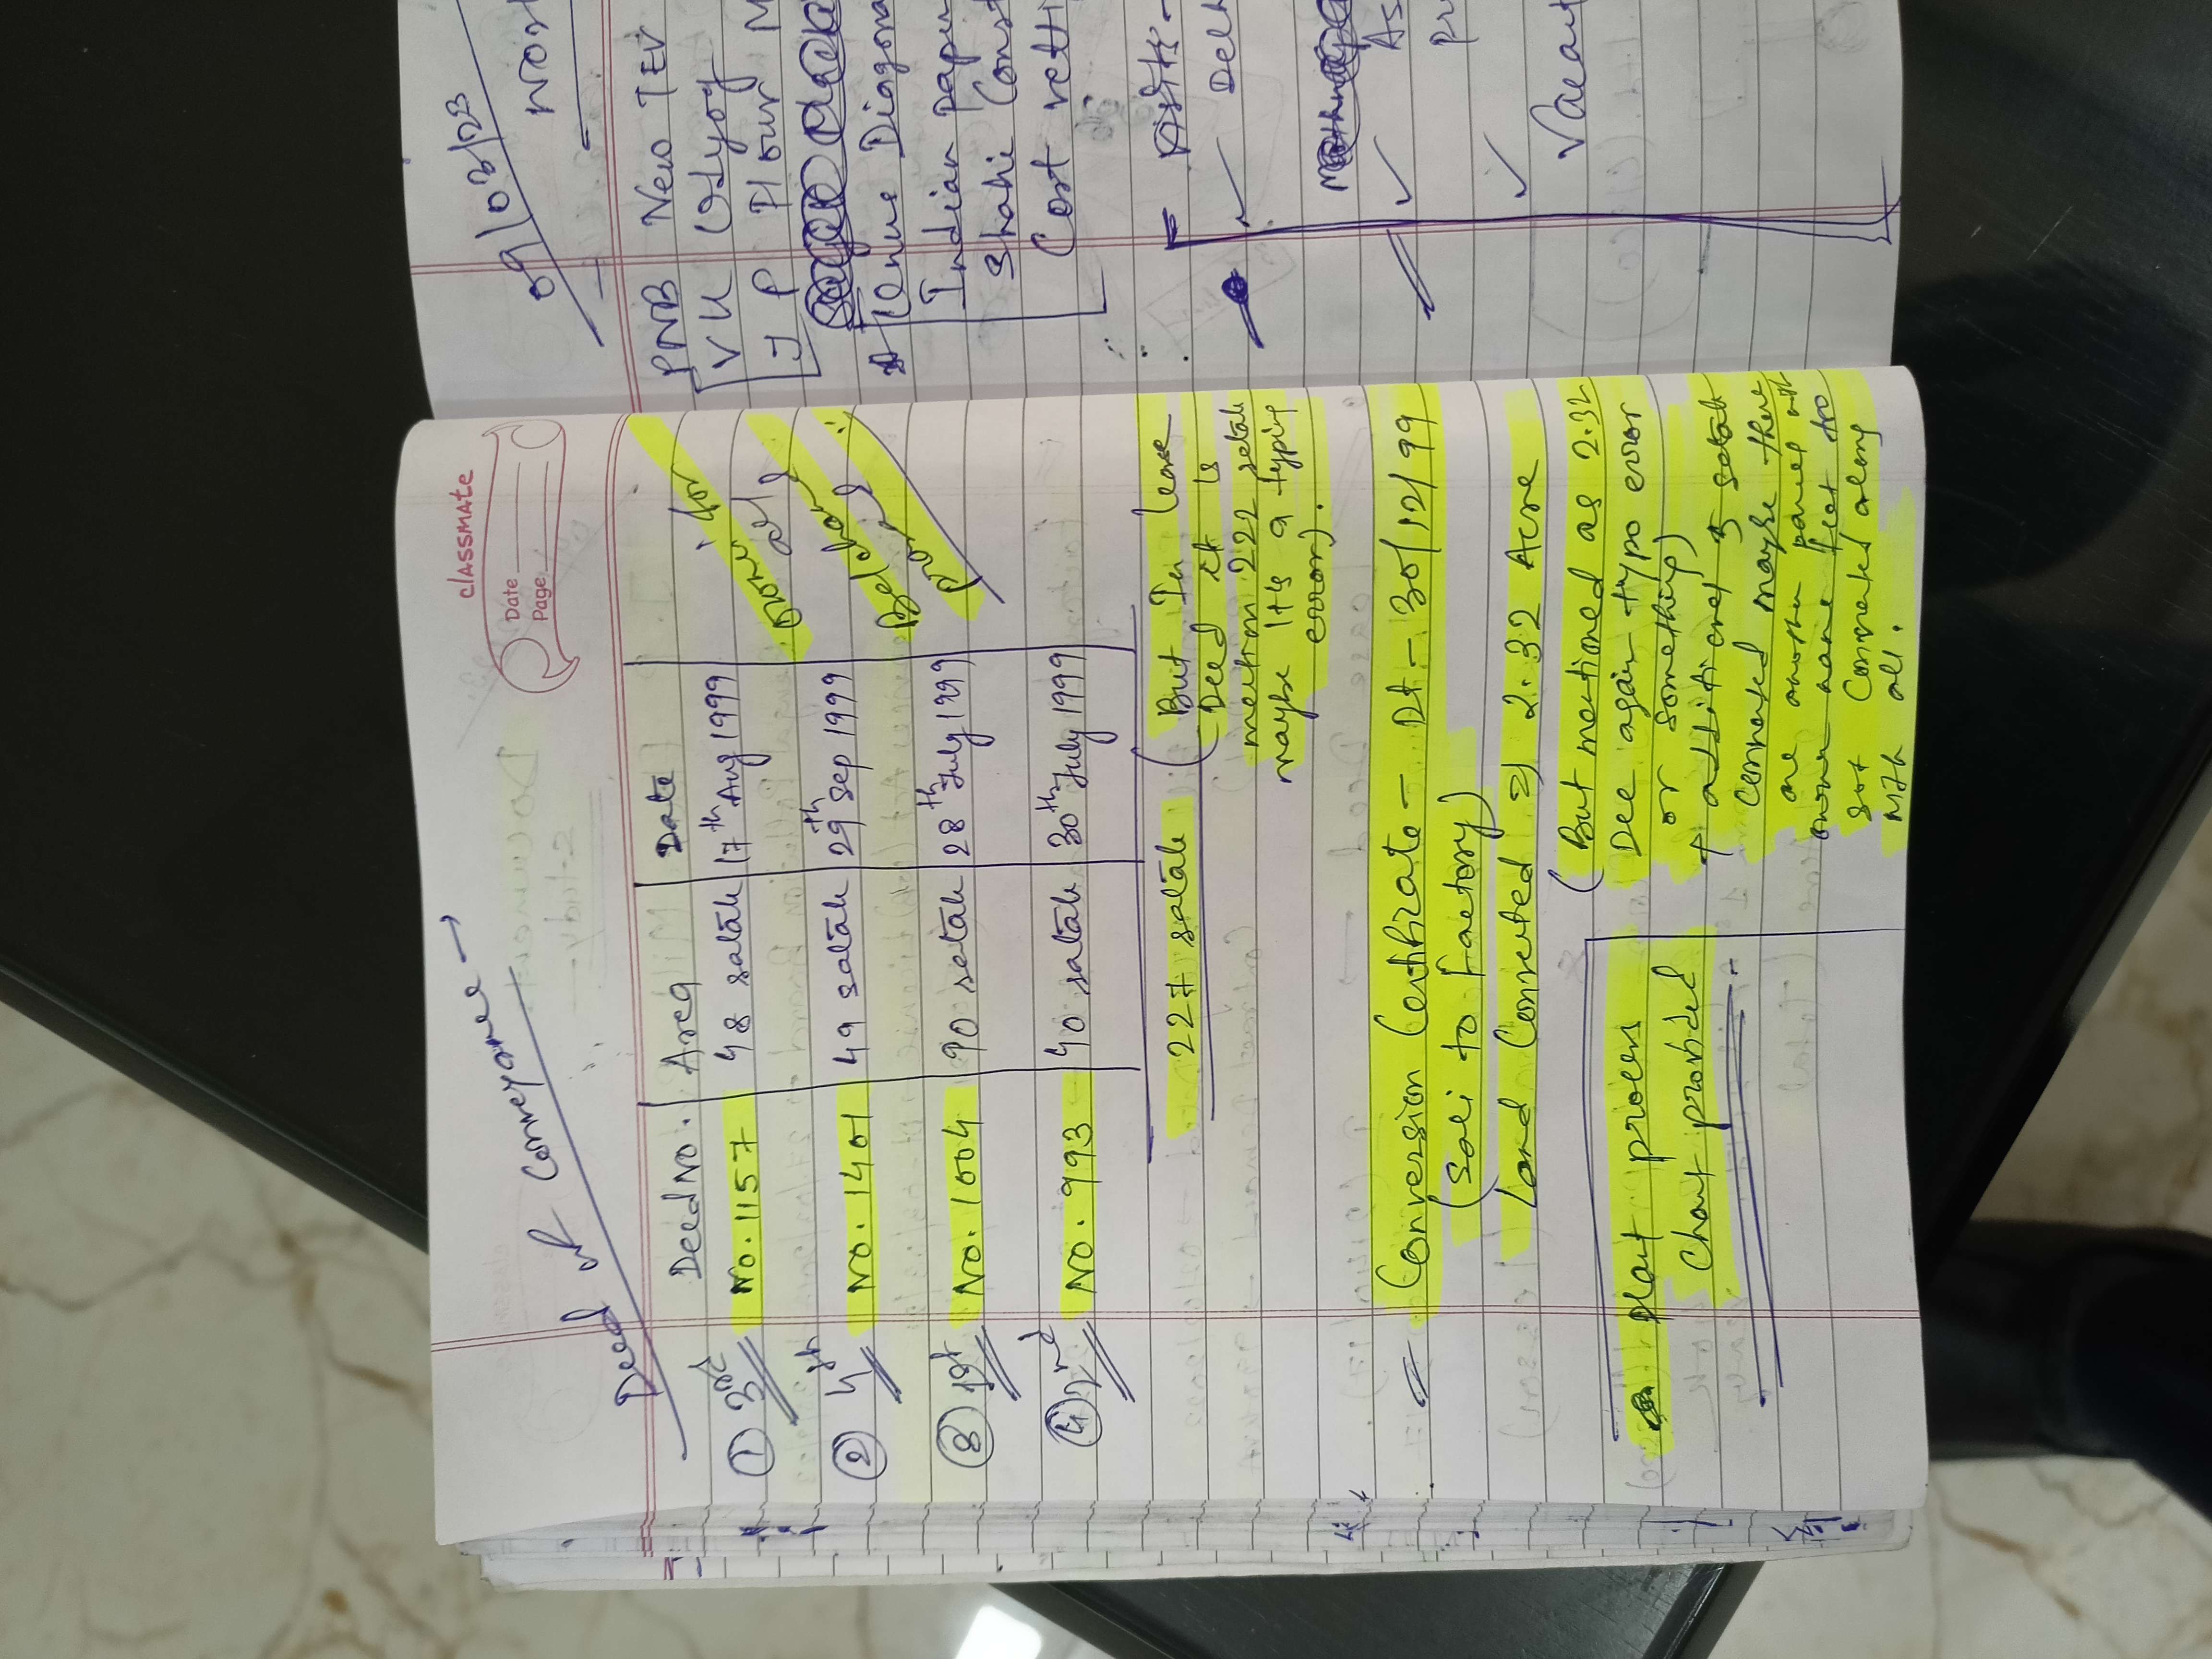 classmate
Date
Page
Deed of Conveyance →
Deed No. Area Date
① 3rd No. 1157 48 satak 17th Aug 1999
② 4th No. 1401 49 satak 29th Sep 1999
③ 1st No. 1004 90 satak 28th July 1999
④ 2nd No. 993 40 satak 30th July 1999
227 satak (But In lease
Deed it is
mention 222 satak
maybe its a typing
error).
Conversion Certificate - Dt - 30/12/99
(Sali to factory)
land Converted = 2.32 Acre
(But mentioned as 2.32
Dec again typo error
or something)
additional 5 satak
Converted maybe there
one another parcel with
owner name
got Converted along
with all.
Plant process
Chart provided
09/03/23
PNB New TEV
VU Udyog
J P Flour M
Venus Diagno
Indian Paper
Shakti Const
Cost vetti
Delh
As
Pr
Vacant